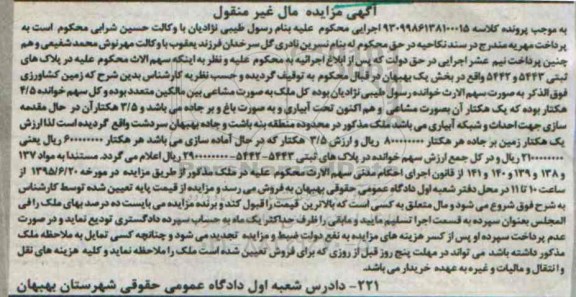 آگهی مزایده مال غیر منقول
به موجب پرونده کلاسه ۹۳۰۹۹۸۶۱۳۸۱۰۰۰۱۵ اجرایی محکوم علیه بنام رسول طیبی نژادیان با وکالت حسین شرابی محکوم است به
پرداخت مهریه مندرج در سند نکاحیه در حق محکوم له بنام نسرین نادری گل سرخدان فرزند یعقوب با وکالت مهرنوش محمدشفیعی و هم
چنین پرداخت نیم عشر اجرایی در حق دولت که پس از ابلاغ اجرائیه به محکوم علیه و نظر به اینکه سهم الاث محکوم علیه در پلاک های
ثبتی ۵۴۴۳ و ۵۴۴۲ واقع در بخش یک بهبهان در قبال محکوم به توقیف گردیده و حسب نظریه کارشناس بدین شرح که زمین کشاورزی
فوق الذکر به صورت سهم الارث خوانده رسول طیبی نژادیان بوده کل ملک به صورت مشاعی بین مالکین متعدد بوده و کل سهم خوانده ۴/۵
هکتار بوده که یک هکتار آن بصورت مشاعی و هم اکنون تحت آبیاری و به صورت باغ و بر جاده می باشد و ۳/۵ هکتار آن در حال مقدمه
سازی جهت احداث و شبکه آبیاری می باشد ملک مذکور در محدوده منطقه بنه باشت و جاده بهبهان سردشت واقع گردیده است لذا ارزش
یک هکتار زمین بر جاده هر هکتار ریال و ارزش ۳/۵ هکتار که در حال آماده سازی می باشد هر هکتار ریال یعنی
ریال و در کل جمع ارزش سهم خوانده در پلاک های ثبتی ۵۴۴۳-۵۴۴۲ ریال اعلام می گردد. مستندا به مواد ۱۳۷
و ۱۳۸ و ۱۳۹ و ۱۴۰ و ۱۴۱ از قانون اجرای احکام مدنی سهم الارث محکوم علیه در ملک مذکور از طریق مزایده در مورخه ۱۳۹۵/۶/۲۰ از
ساعت ۱۰ تا ۱۱ در محل دفتر شعبه اول دادگاه عمومی حقوقی بهبهان به فروش می رسد و مزایده از قیمت پایه تعیین شده توسط کارشناس
به شرح فوق شروع می شود و مال متعلق به کسی است که بالاترین قیمت را قبول کند و برنده مزایده می بایست ده درصد بهای ملک را فی
المجلس بعنوان سپرده به قسمت اجرا تسلیم نمایید و مابقی را ظرف حداکثر یک ماه به حساب سپرده دادگستری تودیع نماید و در صورت
عدم پرداخت سپرده او پس از کسر هزینه های مزایده به نفع دولت ضبط و مزایده تجدید می شود و چنانچه کسی تمایل به ملاحظه ملک
مذکور داشته باشد می تواند در مهلت پنج روز قبل از روزی که برای فروش تعیین شده است ملک را ملاحظه نماید و کلیه هزینه های نقل
و انتقال و مالیات و غیره به عهده خریدار می باشد.
۲۲۱- دادرس شعبه اول دادگاه عمومی حقوقی شهرستان بهبهان